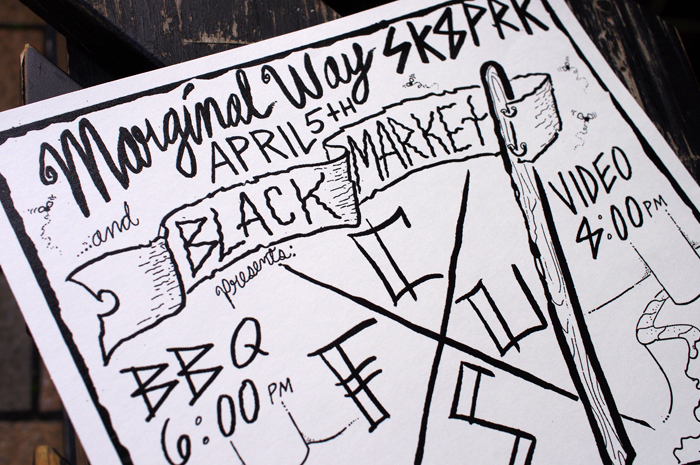 Marginal Way SK8PRK
APRIL 5TH
and
BLACK MARKET
presents:
VIDEO
8:00 PM
BBQ
6:00 PM
F C U S